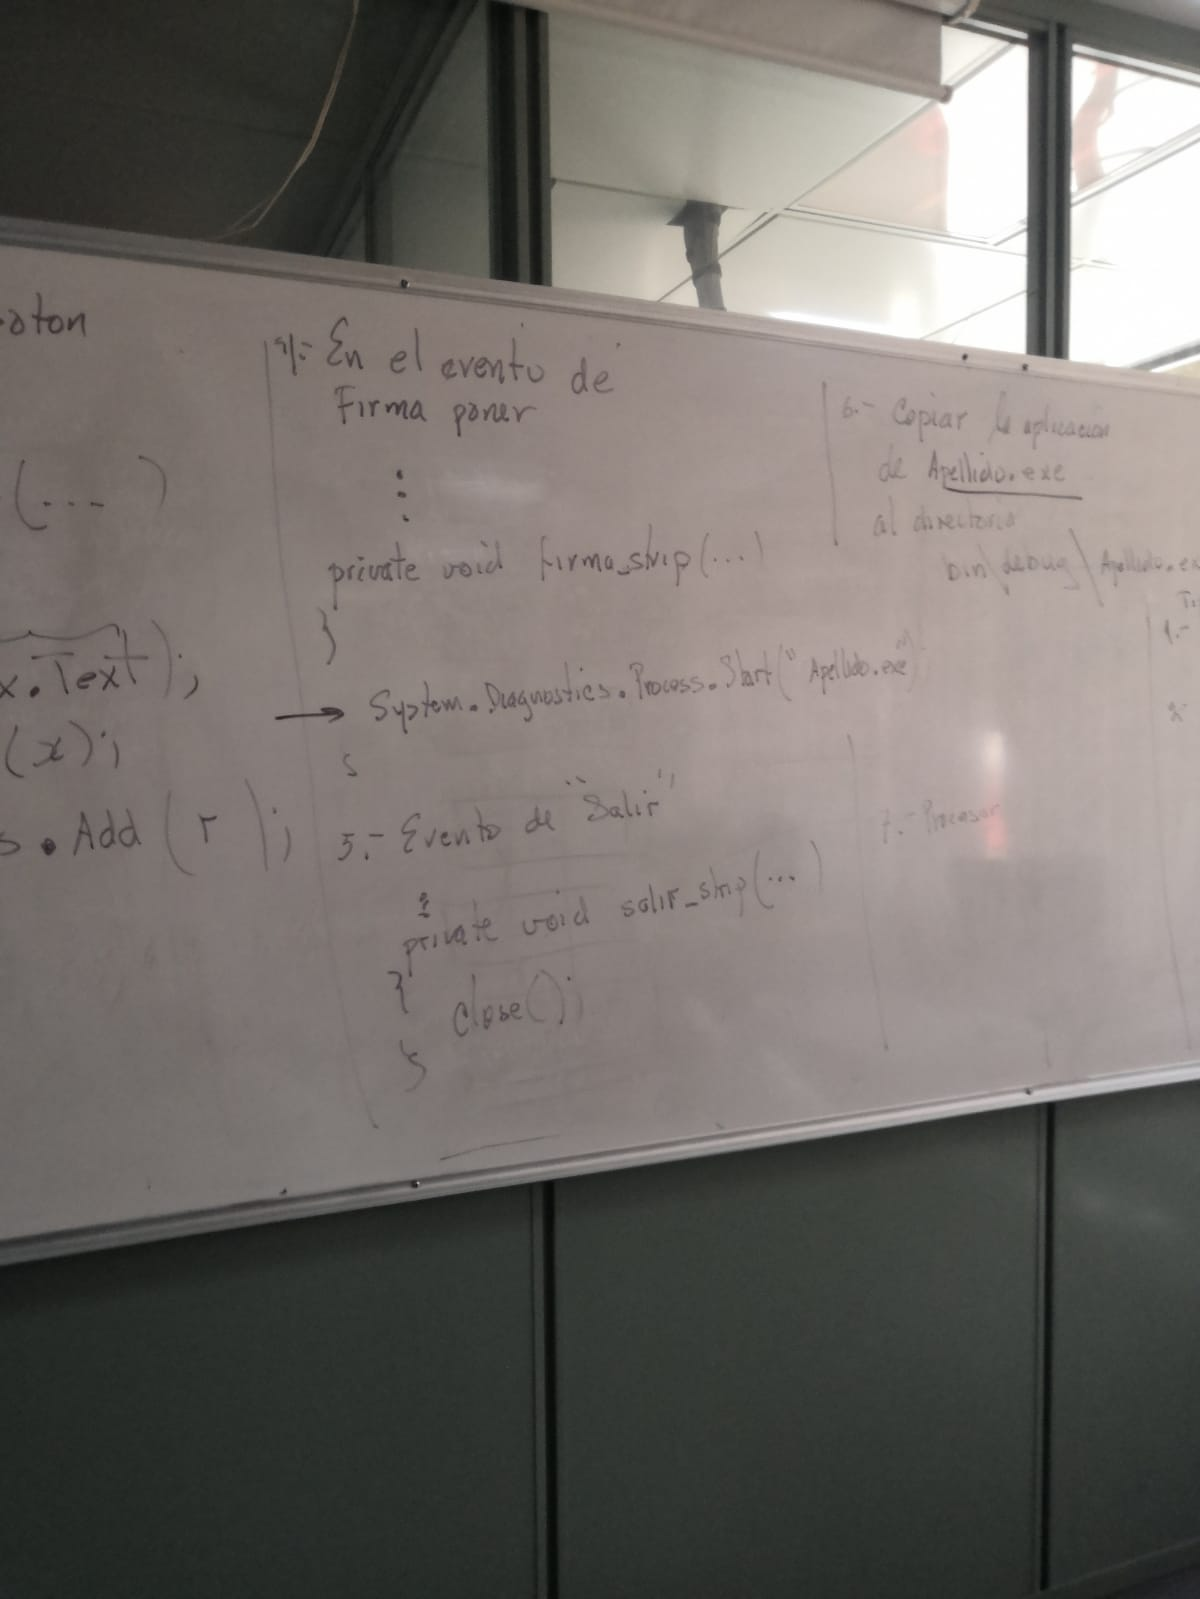 oton
(... )
x.Text);
(x);
s.Add(r);
4.- En el evento de
Firma poner
⋮
private void firma_strip(...)
}
→ System.Diagnostics.Process.Start("Apellido.exe")
5.- Evento de "Salir"
private void salir_strip(...)
{
close();
}
6.- Copiar la aplicación
de Apellido.exe
al directorio
bin\debug\Apellido.ex
7.- Procesar
1.-
2.-